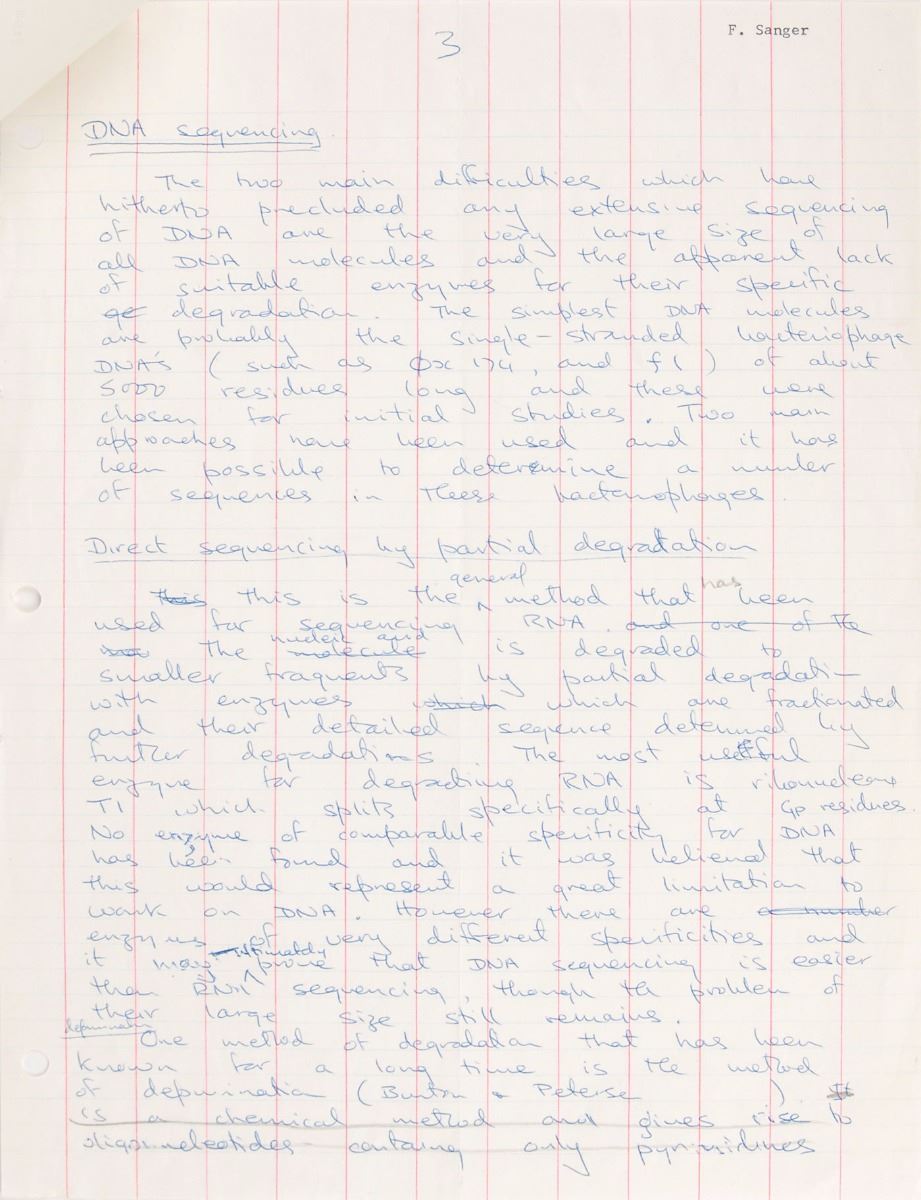 F. Sanger
3
DNA sequencing.
The two main difficulties which have
hitherto precluded any extensive sequencing
of DNA are the very large size of
all DNA molecules and the apparent lack
of suitable enzymes for their specific
degradation. The simplest DNA molecules
are probably the single-stranded bacteriophage
DNA's (such as ϕx 174, and f1) of about
5000 residues long and these were
chosen for initial studies. Two main
approaches have been used and it has
been possible to determine a number
of sequences in these bacteriophages.
Direct sequencing by partial degradation
general has
this this is the ^ method that been
used for sequencing RNA. and one of the
nucleic acid
the molecule is degraded to
smaller fragments by partial degradati-
with enzymes which which are fractionated
and their detailed seqence determined by
further degradations. The most useful
enzyme for degrading RNA is ribonuclease
T1 which splits specifically at Gp residues.
No enzyme of comparable specificity for DNA
has been found and it was believed that
this would represent a great limitation to
work on DNA. However there are a number
enzymes of very different specificities and
ultimately
it may ^ prove that DNA sequencing is easier
than RNA sequencing, though the problem of
their large size still remains.
depurination
One method of degradation that has been
known for a long time is the method
of depurination (Burton & Peterse ). It
is a chemical method and gives rise to
oligonucleotides containing only pyrimidines